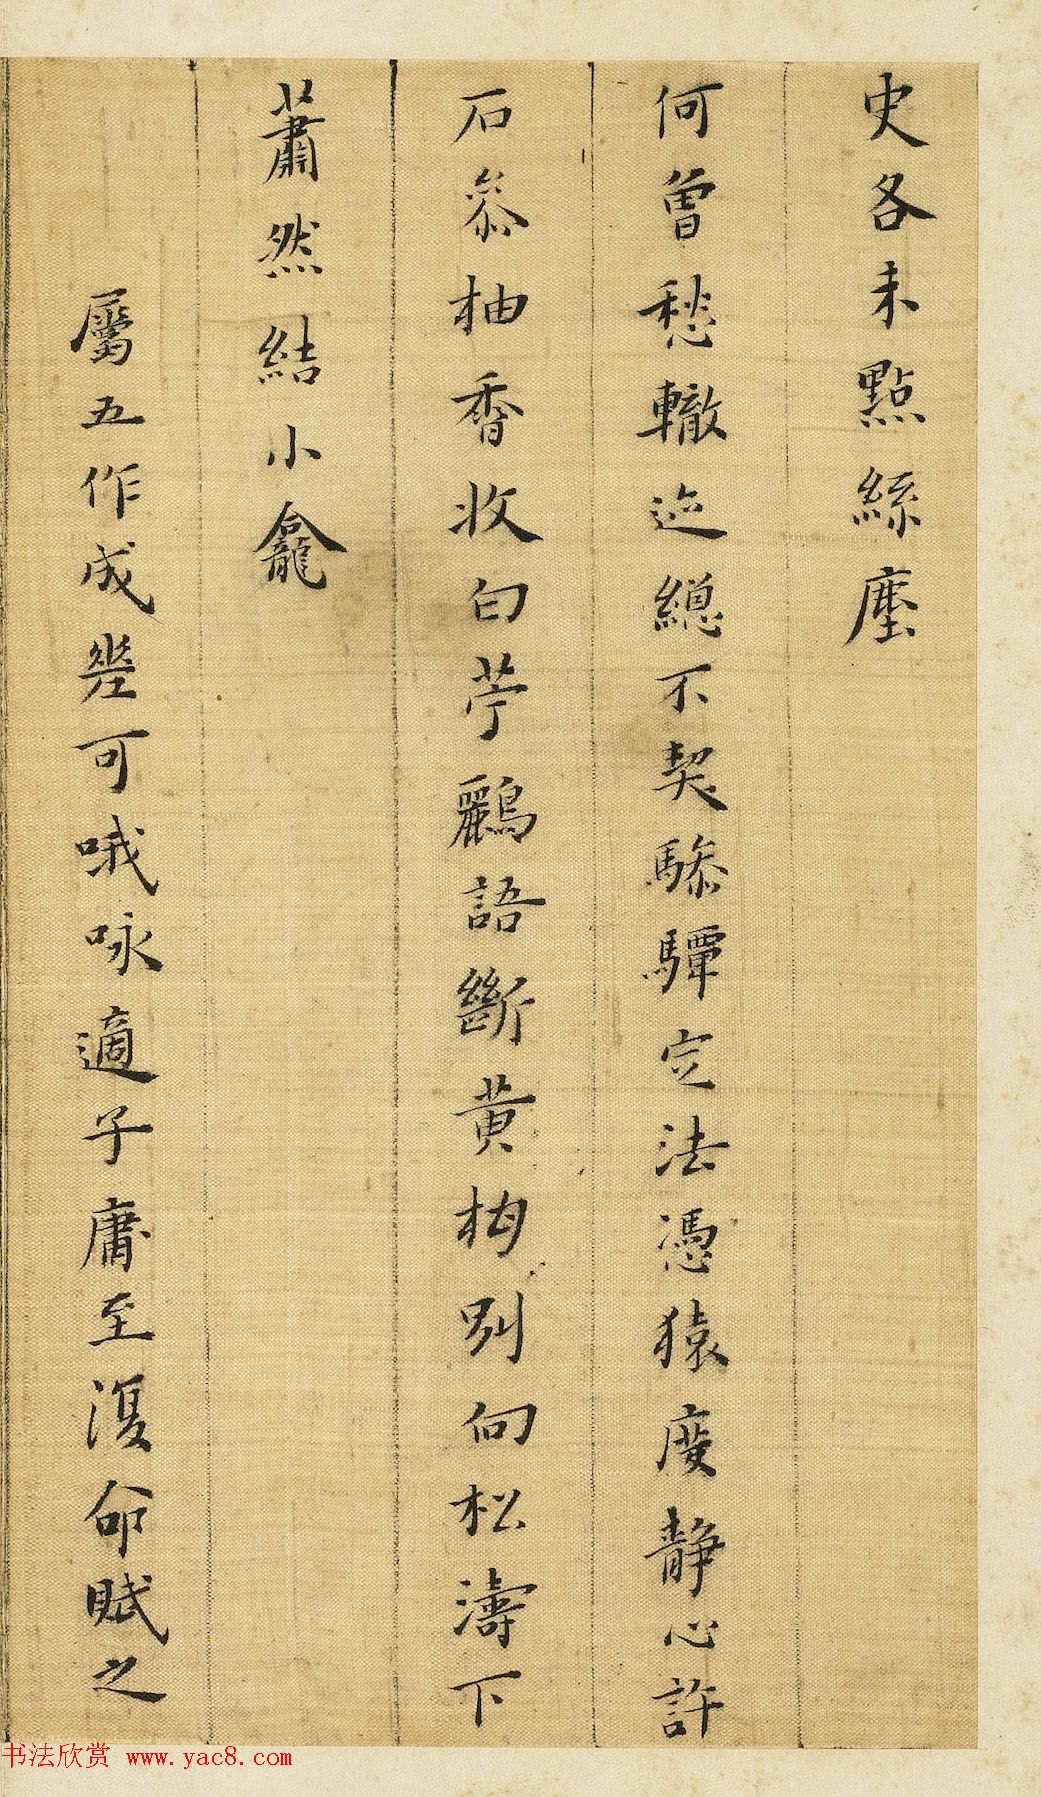 史各未點絲塵
何曾愁轍迹總不契驂驔定法憑猿度静心許
石叅柚香收白苧鸝語斷黄柑別向松濤下
蕭然結小龕
屬五作成㡬可哦咏適子庸至復命賦之
书法欣赏 www.yac8.com